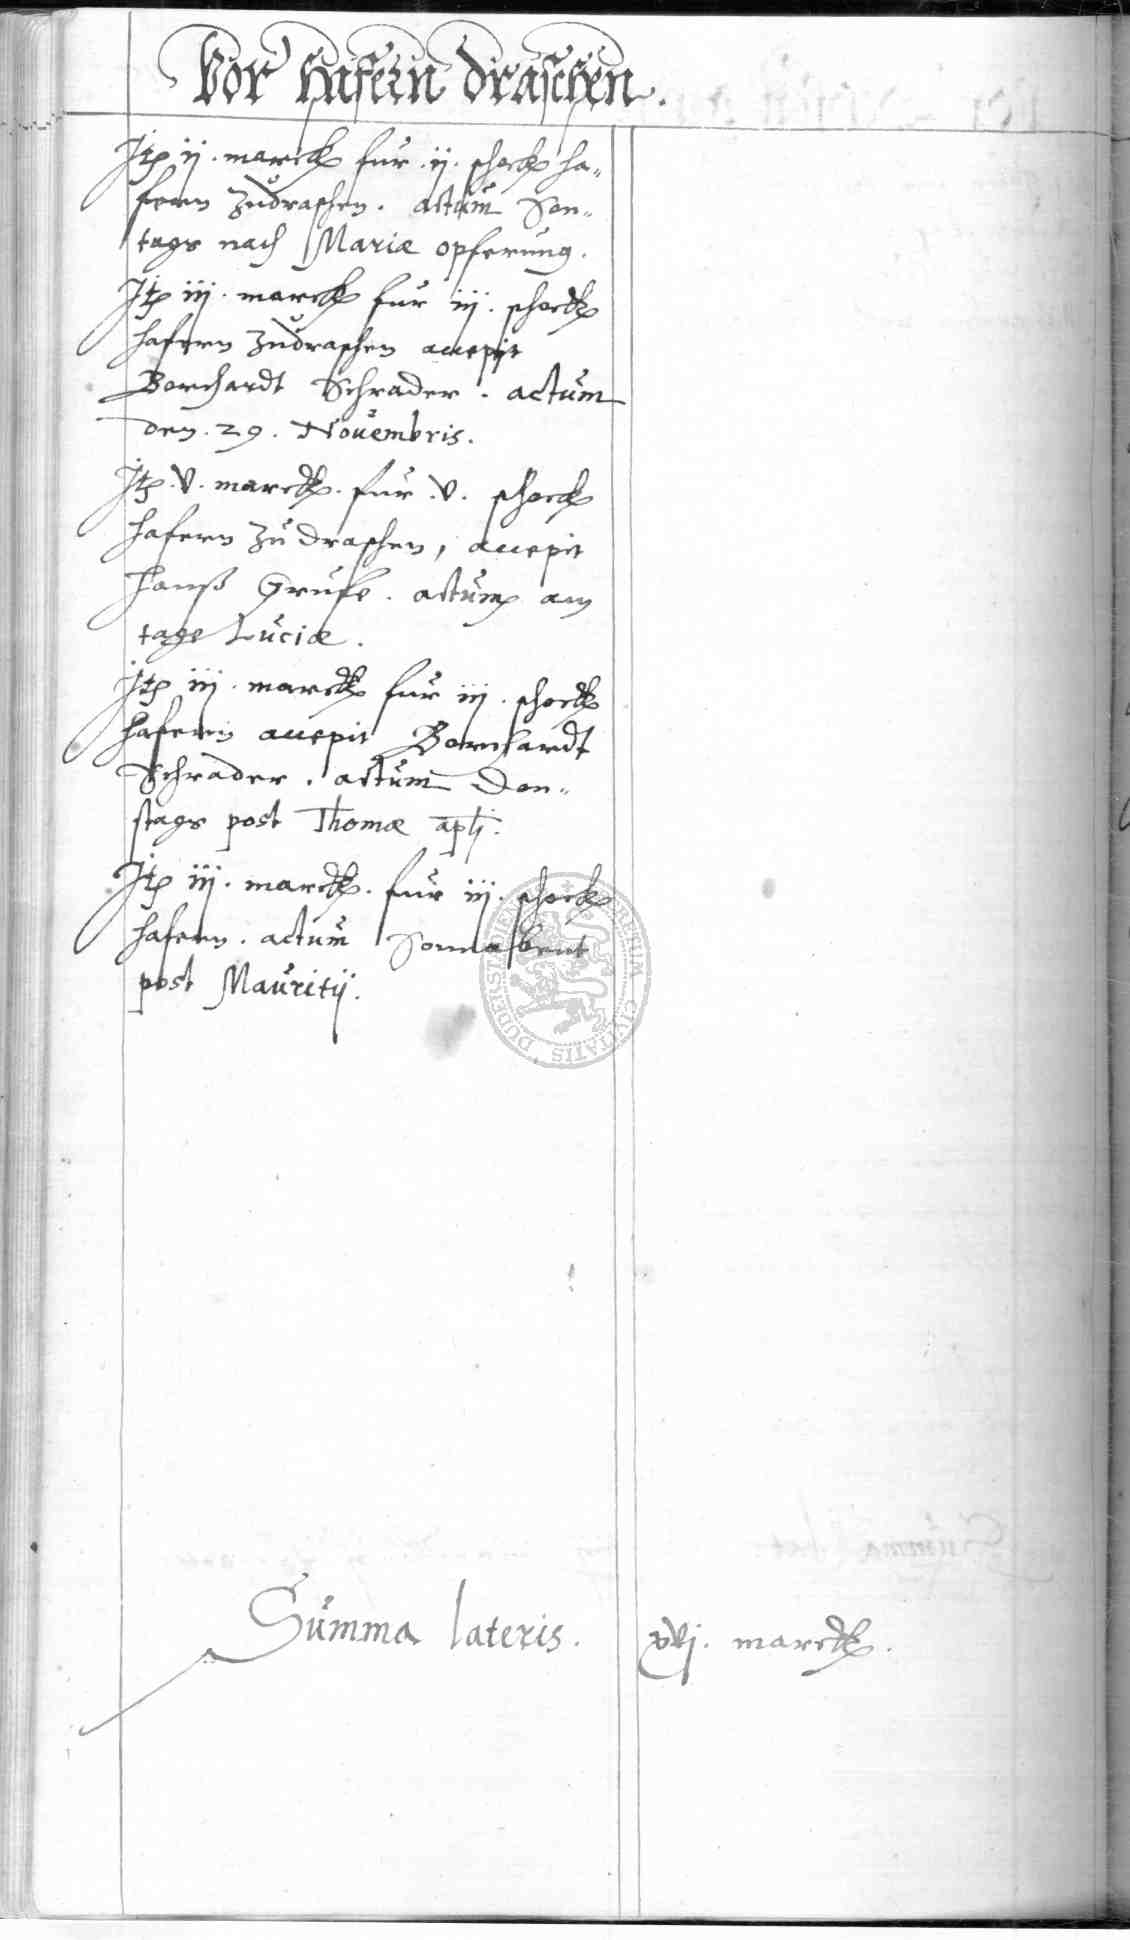 Vor hafern draschen.
Jtz ij. marck fur .ij. schock ha„
fern zudraschen. actum Son„
tags nach Mariæ opferung.
Jtz iij. marck fur iij. schock
hafern zudraschen accepit
Borchardt Schrader. actum
den. 29. Nouembris.
Jtz .v. marck. fur .v. schock
hafern zu draschen, accepit
Hanß Grufe. actum am
tage Luciæ.
Jtz iij. marck fur iij. schock
hafern accepit Borchardt
Schrader. actum Don„
stags post Thomæ apli.
Jtz iij. marck. fur iij. schock
hafern. actum Sonnabent
post Mauritij.
DUDERSTADIEN CIVITATIS
Summa lateris. xvj. marck.